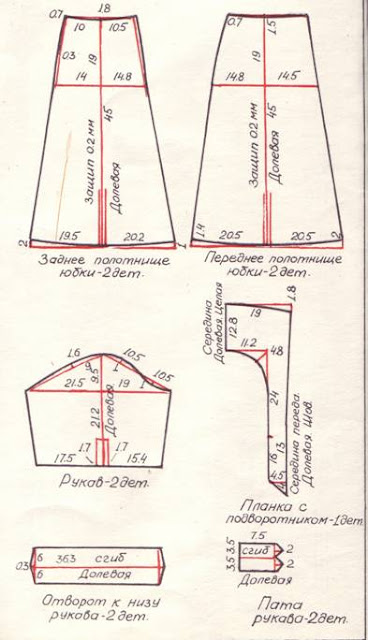 1.8
0.7 10 10.5
0.3 19
14 14.8
45
Защип 0.2 мм
Долевая
2 19.5 20.2 1
Заднее полотнище
юбки-2дет.
0.7 1.5
19
14.8 14.5
45
Защип 0.2 мм
Долевая
1.4 20.5 20.5 2
Переднее полотнище
юбки-2дет.
1.6 10.5
9.5 1 10.5
21.5 19 1
21.2
Долевая
1.7 1.7
17.5 15.4
Рукав-2дет.
19 1.8
Середина
Долевая. Целая
12.8
11.2 48
24
16 13
4.5
Середина переда.
Долевая. Шов.
Планка с
подворотником-1дет.
0.3 6 36.3 сгиб
6 Долевая
Отворот к низу
рукава-2дет.
7.5
3.5 3.5 сгиб 2
2
Долевая
Пата
рукава-2дет.